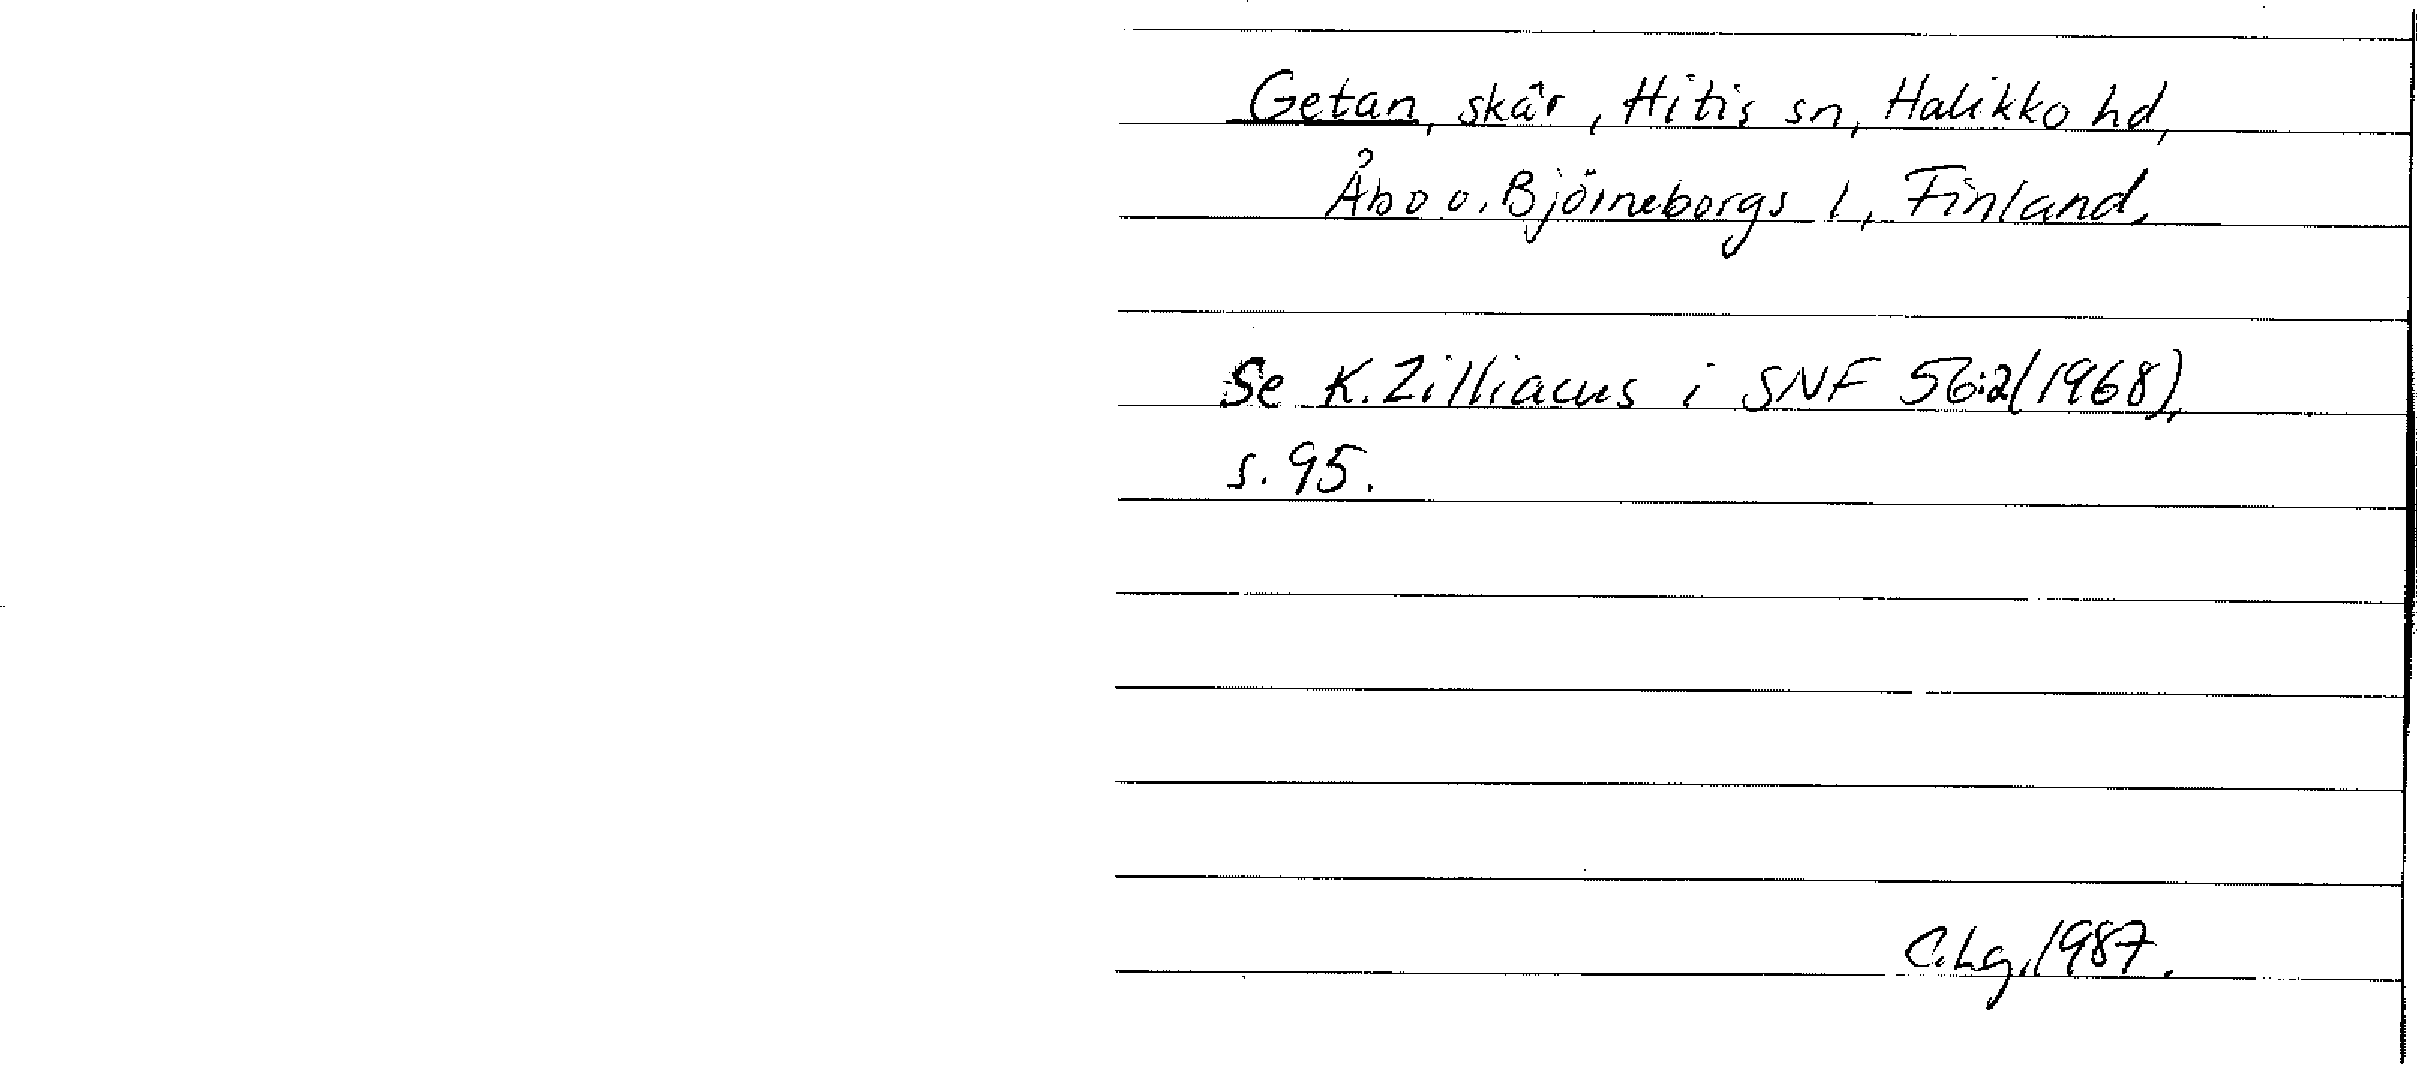 Getan, skär, Hitis sn, Halikko hd,
Åbo o. Björneborgs l, Finland.
Se K. Zilliacus i SNF 56:2(1968),
s. 95.
C.Lg, 1987.